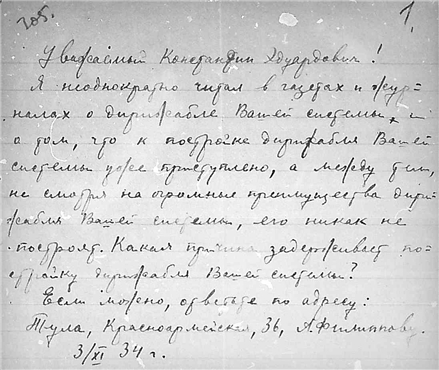 305.
1.
Уважаемый Константин Эдуардович!
Я неоднократно читал в газетах и жур-
налах о дирижабле Вашей системы, и
о том, что к постройке дирижабля Вашей
системы уже приступлено, а между тем,
не смотря на огромные преимущества дири-
жабля Вашей системы, его никак не
построят. Какая причина задерживает по-
стройку дирижабля Вашей системы?
Если можно, ответьте по адресу:
Тула, Красноармейская, 36, А.Филиппову.
3/XI 34 г.